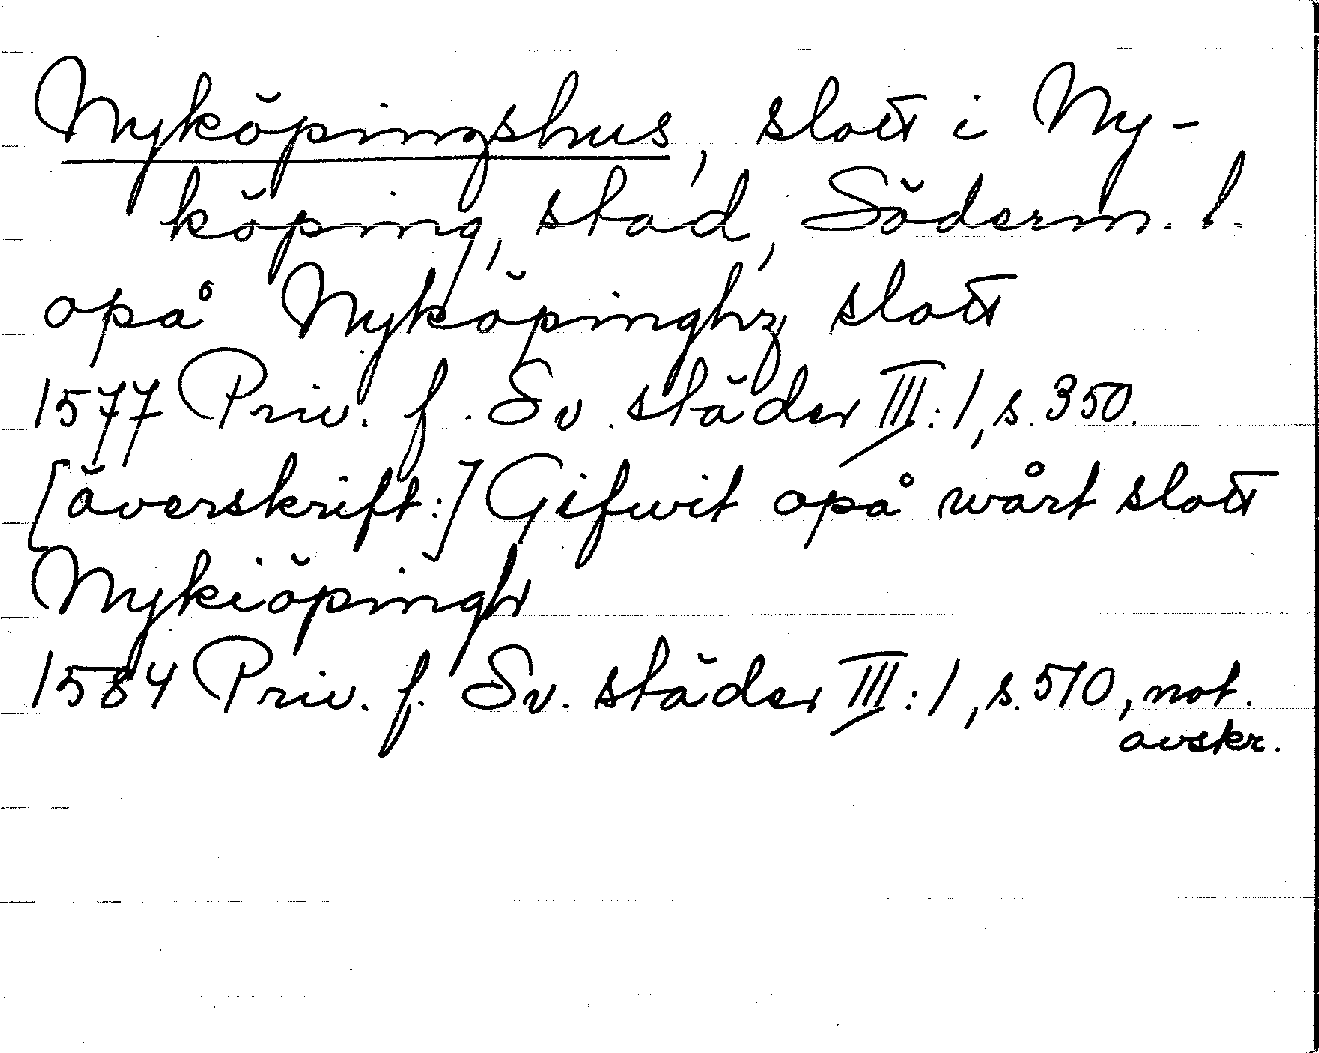 Nyköpingshus, slott i Ny-
köping, stad, Söderm. l.
opå Nyköpinghz slott
1577 Priv. f. Sv. städer III:1, s. 350.
[överskrift:] Gifwit opå wårt slott
Nykiöpingh
1584 Priv. f. Sv. städer III:1, s. 510, not.
avskr.